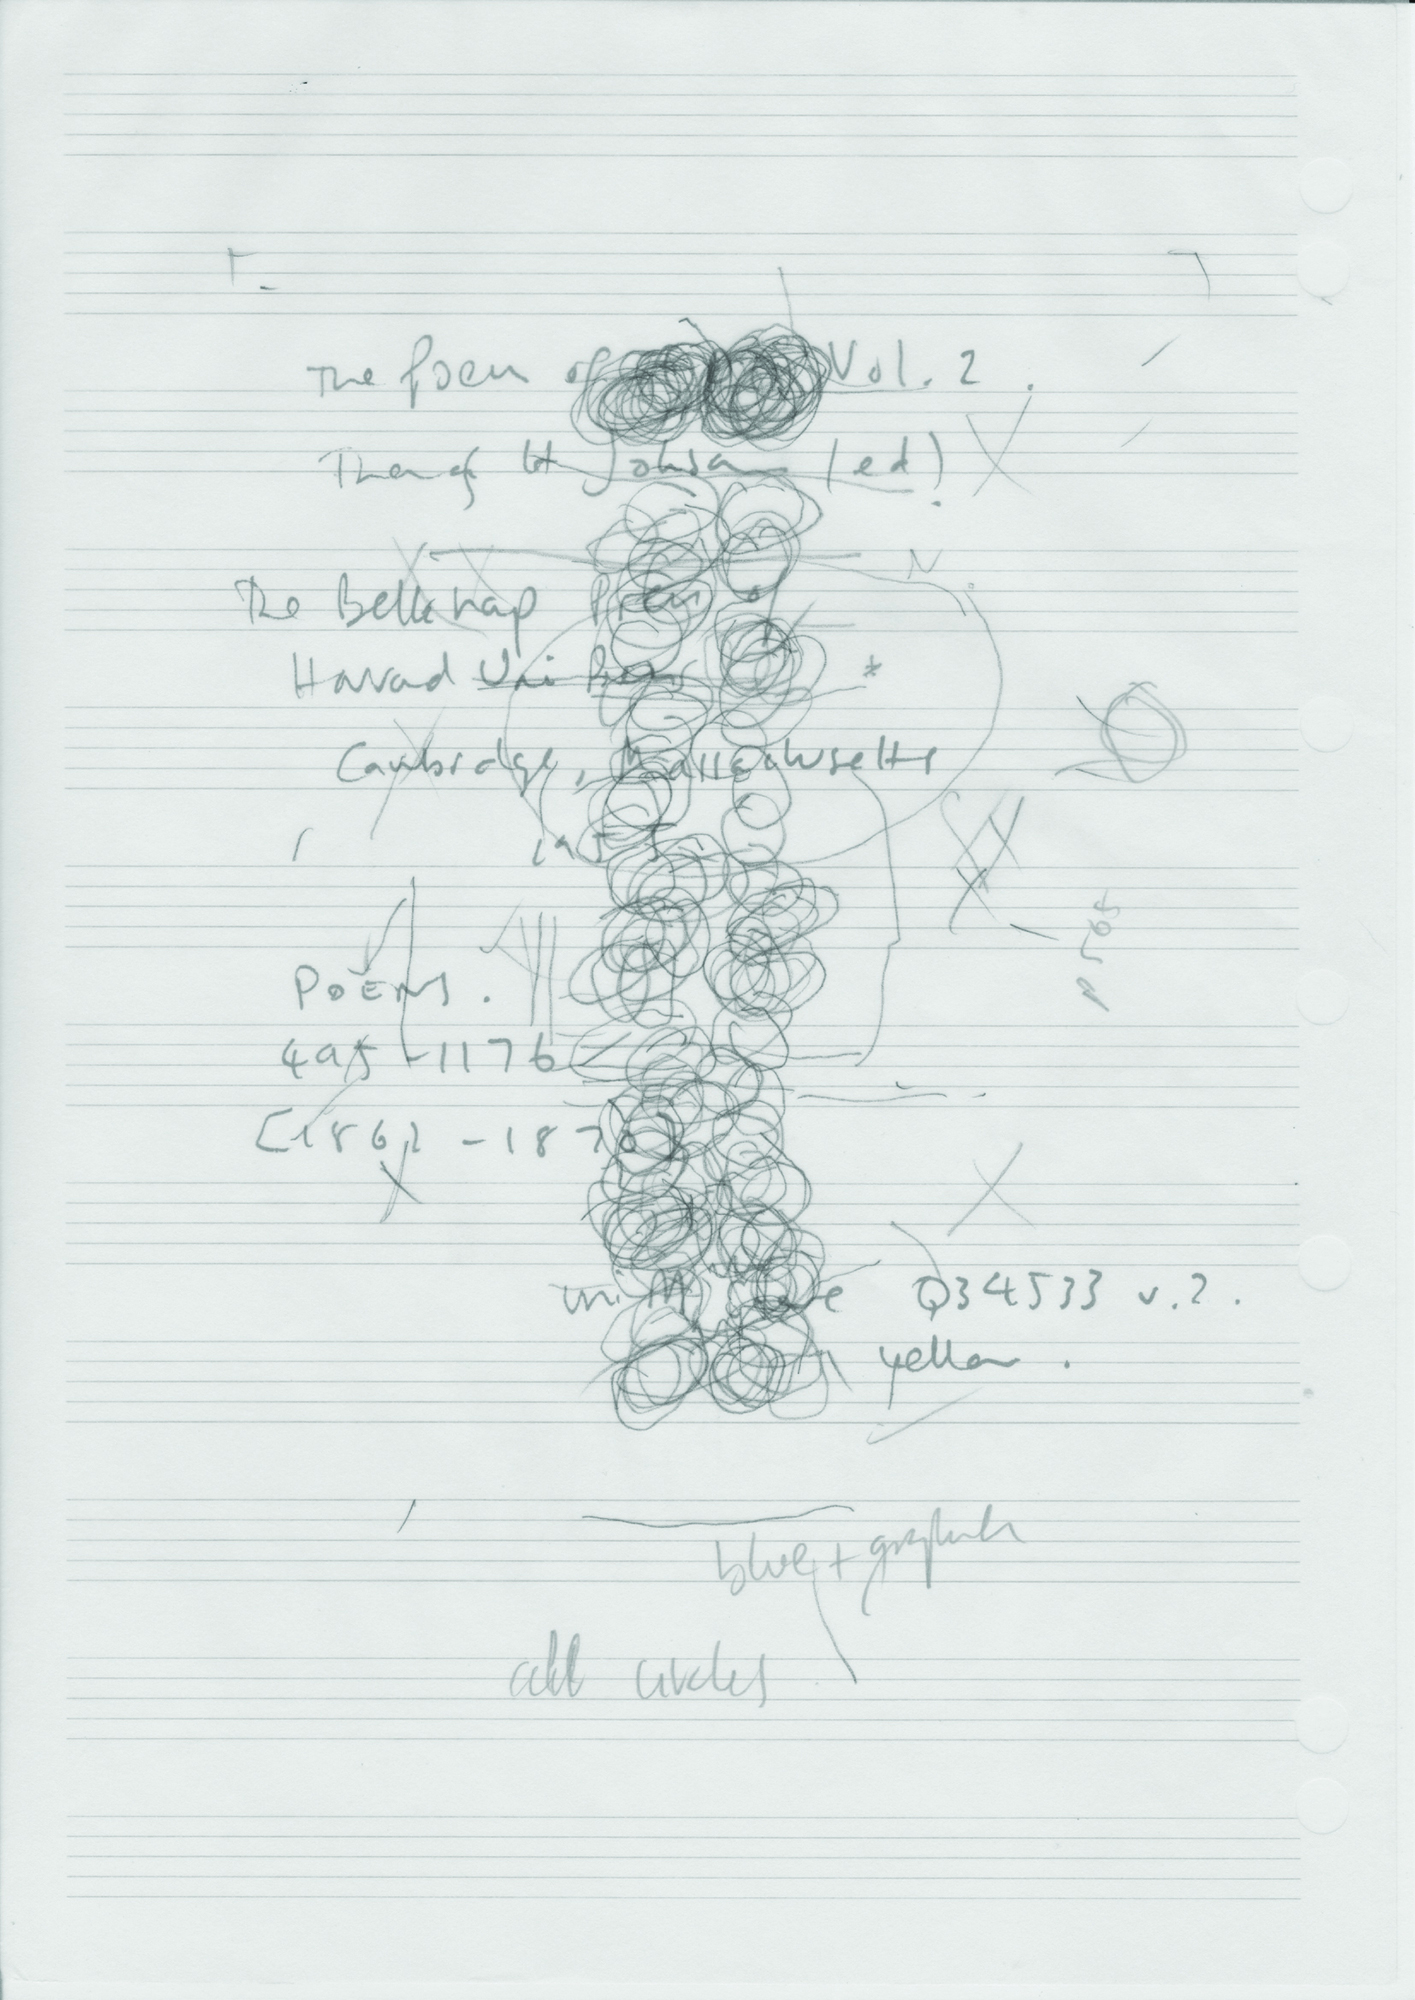 The Poems of Vol. 2.
Thomas H Johnson (ed).
The Belknap Press of
Harvard Uni Press *
Cambridge, Massachusetts
195
p 565
POEMS.
495-1176
[1862 - 1870]
uni M Q34533 v.2.
yellow.
blue + graphite
all circles